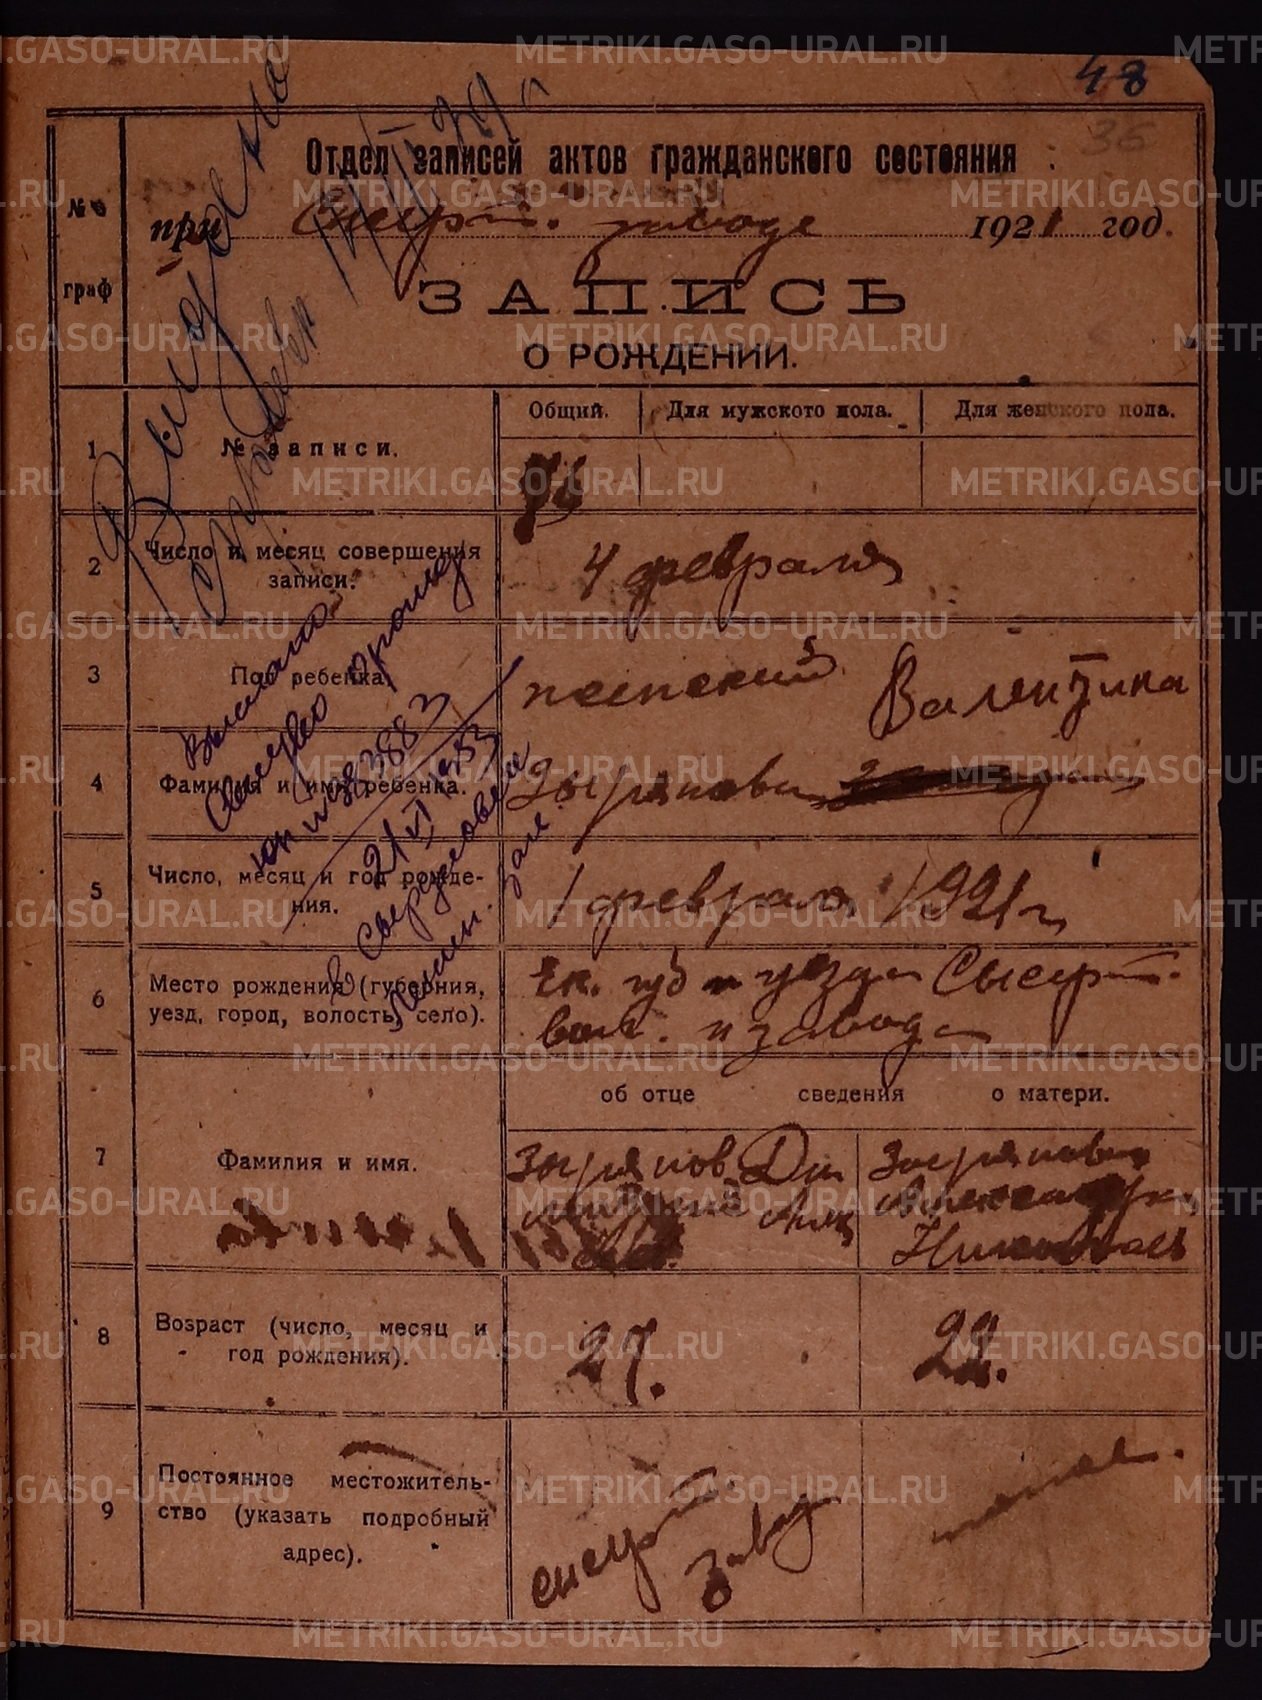 48
36
Отдел записей актов гражданского состояния
при Сысерт. заводе 1921 год.
ЗАПИСЬ
О РОЖДЕНИИ.
№№ граф
Общий. Для мужского пола. Для женского пола.
1 № записи.
2 Число и месяц совершения записи. 4 февраля
3 Пол ребенка. женский Валентина
4 Фамилия и имя ребенка. Зырянова
5 Число, месяц и год рождения. 1 февраля 1921 г
6 Место рождения (губерния, уезд, город, волость, село). Ек. губ и уезда Сысерт. вол. и завода
об отце сведения о матери.
7 Фамилия и имя. Зырянов Зырянова Александра Николаев
8 Возраст (число, месяц и год рождения). 27. 22.
9 Постоянное местожительство (указать подробный адрес). Сысерт завод
Выдано
Выслано
21/VI 1953
в Свердловск
METRIKI.GASO-URAL.RU